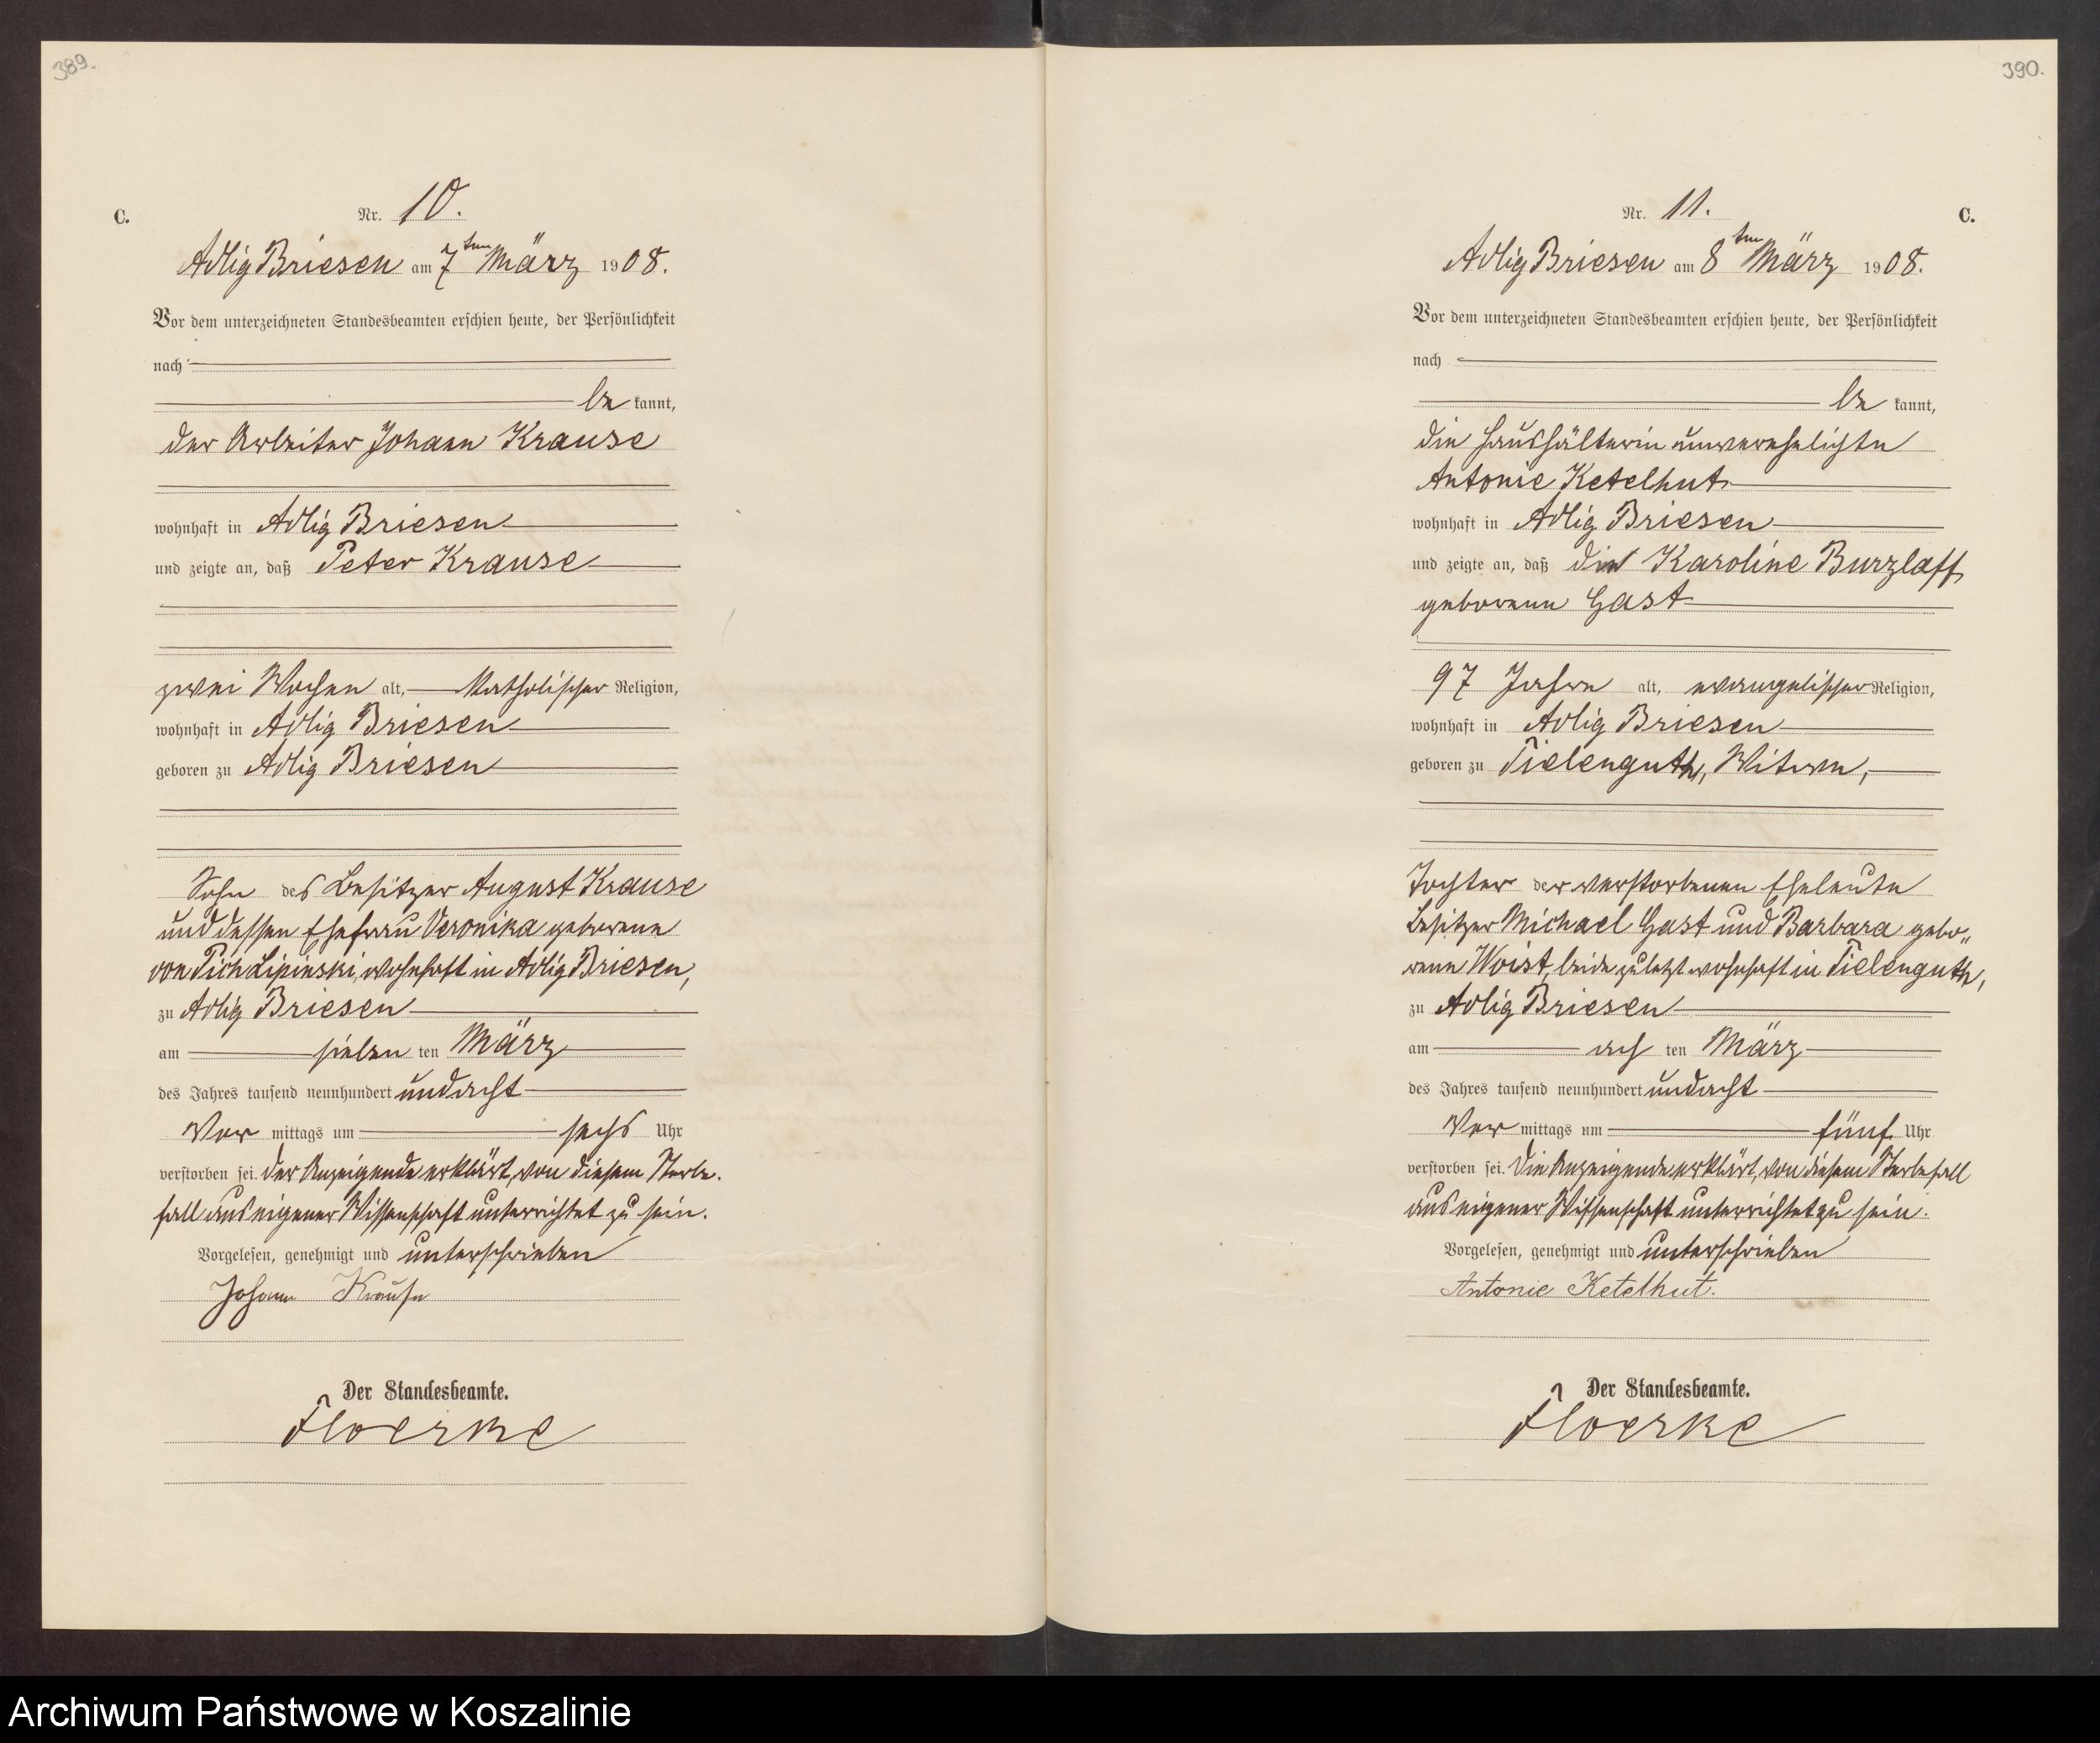 389.
C.
Nr. 10.
Adlig Briesen am 7ten März 1908.
Vor dem unterzeichneten Standesbeamten erschien heute, der Persönlichkeit
nach
be kannt,
der Arbeiter Johann Krause
wohnhaft in Adlig Briesen
und zeigte an, daß Peter Krause
zwei Wochen alt, katholischer Religion,
wohnhaft in Adlig Briesen
geboren zu Adlig Briesen
Sohn des Besitzer August Krause
und dessen Ehefrau Veronika geborene
von Pich Lipinski, wohnhaft in Adlig Briesen,
zu Adlig Briesen
am sieben ten März
des Jahres tausend neunhundert undacht
Vor mittags um sechs Uhr
verstorben sei. Der Anzeigende erklärt, von diesem Sterbe-
fall aus eigener Wissenschaft unterrichtet zu sein.
Vorgelesen, genehmigt und unterschrieben
Johann Krause
Der Standesbeamte.
Floerke
390.
Nr. 11.
C.
Adlig Briesen am 8ten März 1908.
Vor dem unterzeichneten Standesbeamten erschien heute, der Persönlichkeit
nach
be kannt,
die Haushälterin unverehelichte
Antonie Ketelhut
wohnhaft in Adlig Briesen
und zeigte an, daß die Karoline Burzlaff
geborene Gast
97 Jahre alt, evangelischer Religion,
wohnhaft in Adlig Briesen
geboren zu Tielenguth, Witwe,
Tochter der verstorbenen Eheleute
Besitzer Michael Gast und Barbara gebo„
rene Woist, beide zuletzt wohnhaft in Tielenguth,
zu Adlig Briesen
am ach ten März
des Jahres tausend neunhundert undacht
Vor mittags um fünf Uhr
verstorben sei. Die Anzeigende erklärt, von diesem Sterbefall
aus eigener Wissenschaft unterrichtet zu sein.
Vorgelesen, genehmigt und unterschrieben
Antonie Ketelhut.
Der Standesbeamte.
Floerke
Archiwum Państwowe w Koszalinie